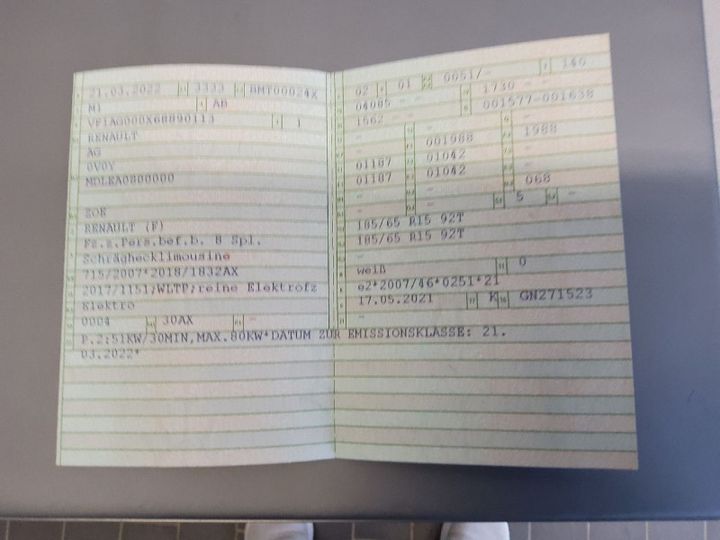 21.03.2022 3333 BMT00024X
M1 AB
VF1AG000X68890113 1
RENAULT
AG
0V0Y
MDLEA0800000
-
ZOE
RENAULT (F)
Fz.z.Pers.bef.b. 8 Spl.
Schräghecklimousine
715/2007*2018/1832AX
2017/1151;WLTP;reine Elektrofz
Elektro
0004 30AX -
P.2:51KW/30MIN,MAX.80KW*DATUM ZUR EMISSIONSKLASSE: 21.
03.2022*
02 01 0051/- 140
04085 - - 1730 - -
1562 - - 001577-001638
- - -
- 001988 - 1988
01187 01042 -
01187 01042 -
- - 068
- - 5 -
185/65 R15 92T
185/65 R15 92T
-
weiß 0
e2*2007/46*0251*21
17.05.2021 K GN271523
-